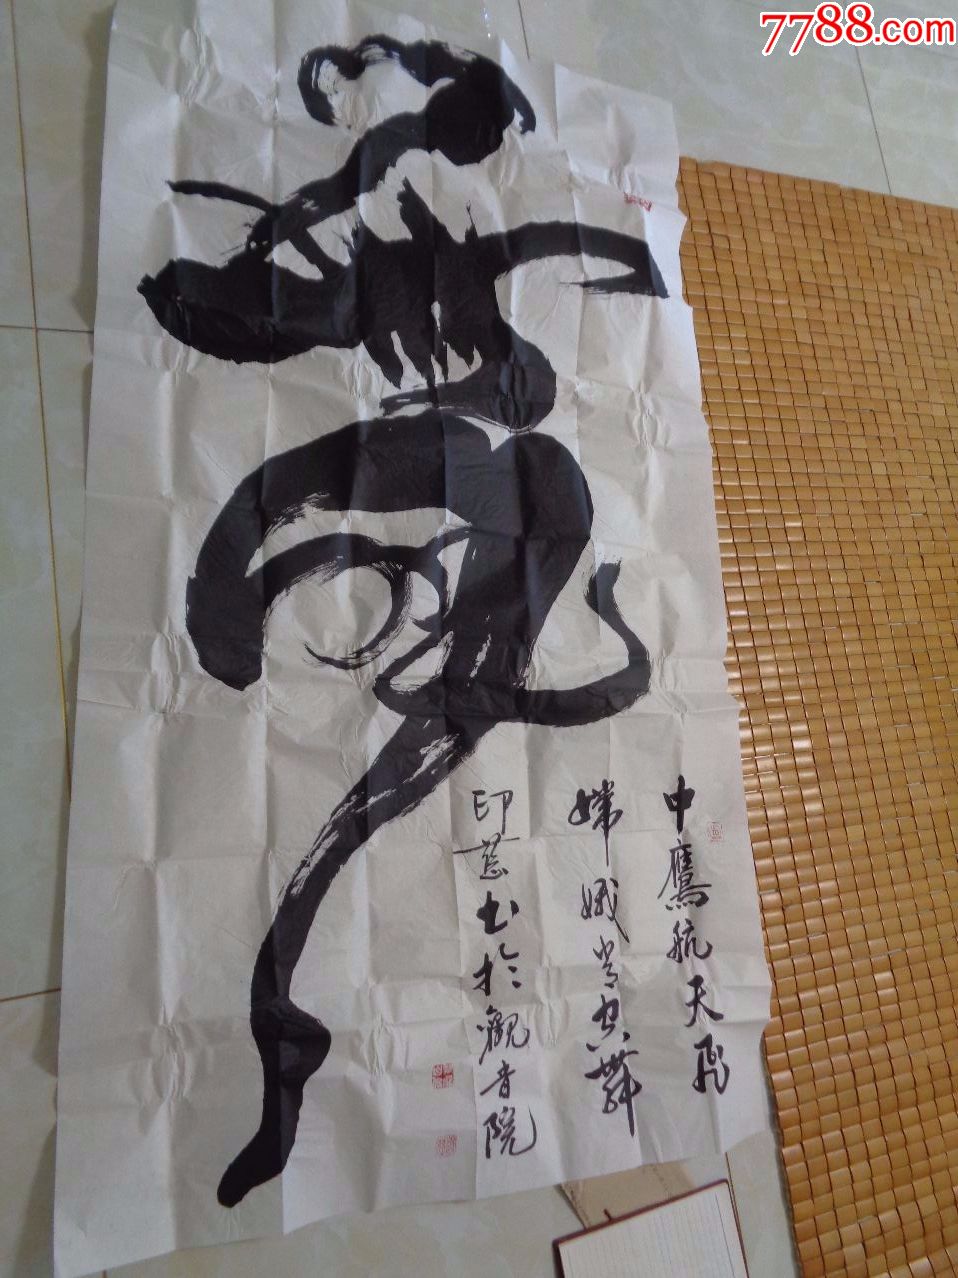 7788.com
中鹰航天飛
嫦娥当空舞
印慈书於觀音院